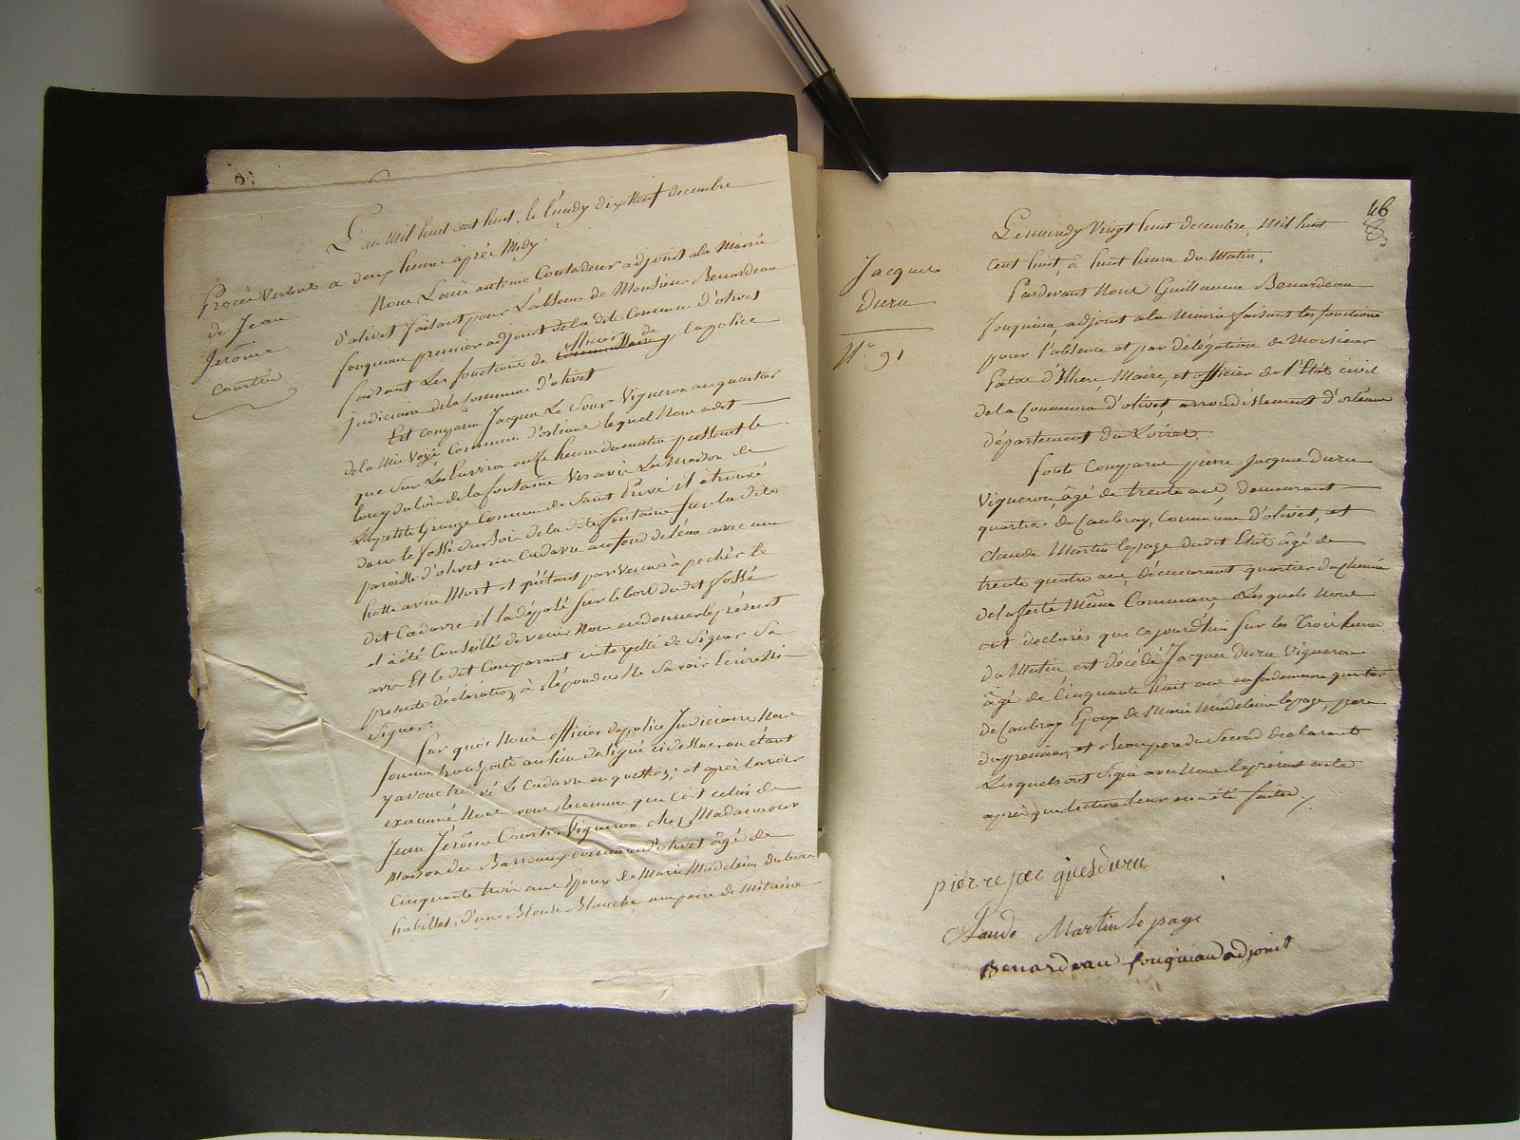 L'an mil huit cent huit, le lundy dix neuf decembre
a deux heures après Midy
Procès Verbal
de Jean
Jerôme
Courtin
Nous Louis antoine Contadeur adjoint ala Mairie
d'olivet faisant pour L'absence de Monsieur Benardeau
fouquiau premier adjoint de la dite Commune d'olivet
faisant Les fonctions de officier de la police
judiciaire de la Commune d'olivet
Est comparu Jacque Le Sour Vigneron au quartier
de la Mivoye Commune d'orleans lequel nous a dit
que Sur Les Environ onze heures du matin passant le
long du loir de la fontaine Vis avis La Maison de
La petite Grange Commune de Saint Privé il a trouvé
dans le fossé du loir de la dite fontaine Sur la dite
paroisse d'olivet un Cadavre au fond de l'eau avec une
hotte avin Mort et qu'étant parvenu à pecher le
dit Cadavre il la déposé Sur le bord du dit fossé
et a été Conseillé de venir Nous en donner le présent
avis Et le dit Comparant interpellé de Signer Sa
presente déclaration, à Répondu Ne Savoir l'écrire ni
Signer.
Sur quoi Nous officier de police Judiciaire Nous
Sommes transporté au lieu désigné cidessus, ou étant
y avons trouvé Le Cadavre en question; et après l'avoir
examiné Nous avons Reconnu que C'est celui de
Jean Jérôme Courtin Vigneron chez Madame
Maison du commune d'olivet âgé de
Cinquante trois ans Epoux de Marie Madeleine
habillé d'une Blouse Blanche une paire de Mitaine
46
Jacques
Duru
N.° 91
Le mercredy Vingt huit decembre, Mil huit
cent huit, à huit heures du Matin,
Pardevant Nous Guillaume Benardeau
fouquiau, adjoint ala Mairie faisant les fonctions
pour l'absence et par délégation de Monsieur
Maire, et officier de l'Etat civil
de la Commune d'olivet, arrondissement d'orléans
département du Loiret
Sont Comparus pierre Jacque Duru
Vigneron, âgé de trente ans, demeurant
quartier de Caubray, Commune d'olivet, et
Claude Martin lepage dudit Etat âgé de
trente quatre ans demeurant quartier du Chemin
de la ferté Même Commune, Lesquels nous
ont declarés que cejourd'hui Sur les Trois heures
du Matin est décédé Jacques Duru Vigneron
âgé de Cinquante huit ans en sa demeure quartier
de Caubray Epoux de Marie Madeleine lepage, pere
du premier, et Beaupere du Second declarants
Lesquels ont Signé avec Nous le présent acte
après que lecture leur en a été faite.
pierre jac quesduru
Claude Martin le page
Benardeau fouquiau adjoint